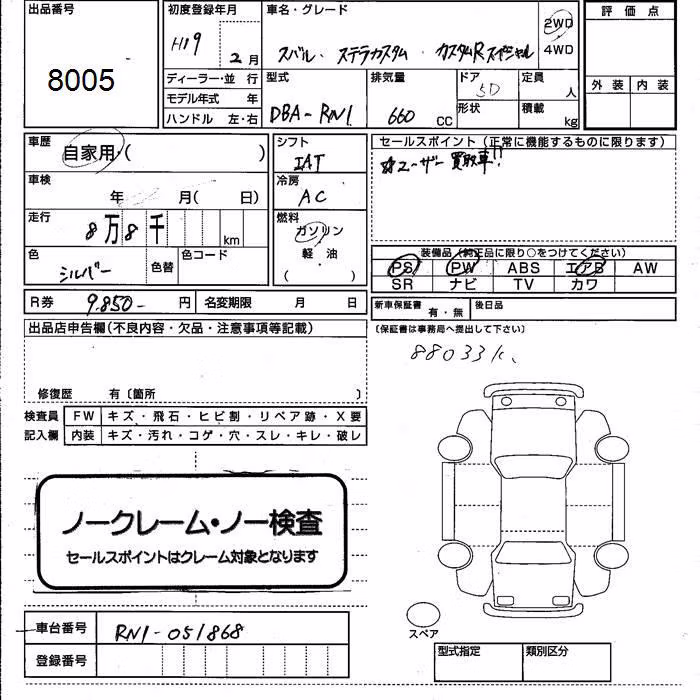 出品番号
8005
初度登録年月
H19 2月
車名・グレード
スバル・ステラカスタム・カスタムRスペシャル
2WD
4WD
評価点
外装 内装
ディーラー・並行
モデル年式 年
ハンドル 左・右
型式
DBA-RN1
排気量
660 CC
ドア
5D
形状
定員
人
積載
kg
車歴
自家用・( )
車検
年 月( 日)
走行
8万8千 km
色
シルバー
色替
色コード
シフト
IAT
冷房
AC
燃料
ガソリン
軽油
( )
セールスポイント(正常に機能するものに限ります)
☆ユーザー買取車!!
装備品(純正品に限り○をつけてください)
PS PW ABS エアB AW
SR ナビ TV カワ
R券 9.850- 円
名変期限 月 日
新車保証書 有・無
後日品
(保証書は事務局へ提出して下さい)
88033K.
出品店申告欄(不良内容・欠品・注意事項等記載)
修復歴 有〔箇所 〕
検査員 FW キズ・飛石・ヒビ割・リペア跡・X要
記入欄 内装 キズ・汚れ・コゲ・穴・スレ・キレ・破レ
ノークレーム・ノー検査
セールスポイントはクレーム対象となります
車台番号 RN1-051868
登録番号
スペア
型式指定 類別区分